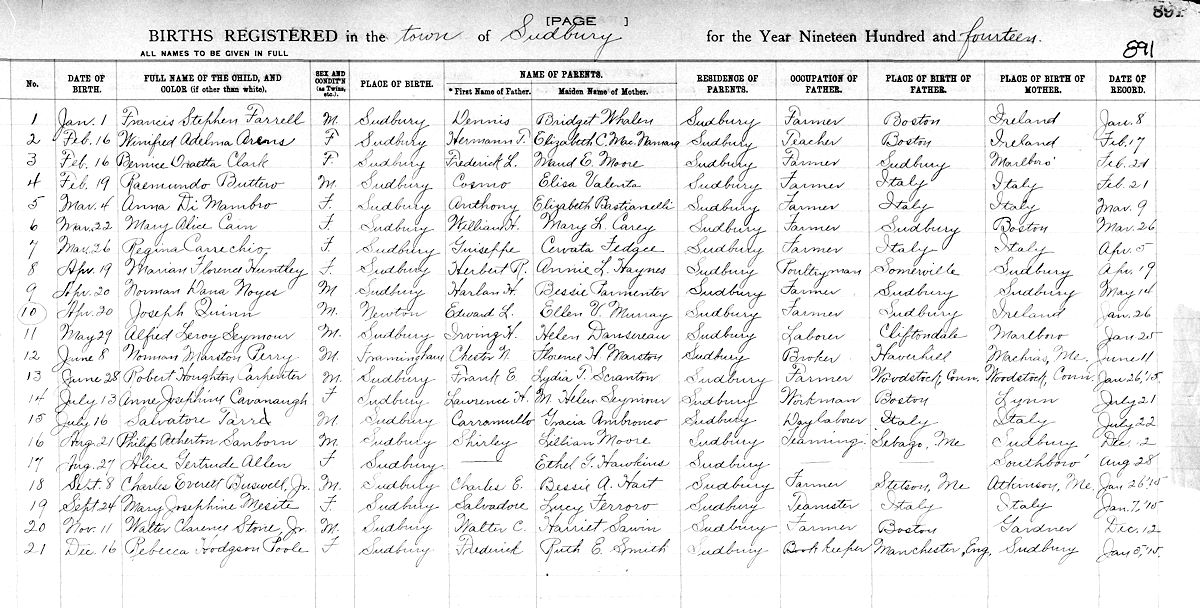 891
[PAGE ]
BIRTHS REGISTERED in the town of Sudbury for the Year Nineteen Hundred and fourteen.
ALL NAMES TO BE GIVEN IN FULL
891
No. DATE OF BIRTH. FULL NAME OF THE CHILD, AND COLOR (if other than white). SEX AND CONDIT'N (as Twins, etc.). PLACE OF BIRTH. NAME OF PARENTS. * First Name of Father. Maiden Name of Mother. RESIDENCE OF PARENTS. OCCUPATION OF FATHER. PLACE OF BIRTH OF FATHER. PLACE OF BIRTH OF MOTHER. DATE OF RECORD.
1 Jan. 1 Francis Stephen Farrell M. Sudbury Dennis Bridget Whalen Sudbury Farmer Boston Ireland Jan. 8
2 Feb. 16 Winifred Adelma Arens F Sudbury Hermann T. Elizabeth C. MacNamara Sudbury Teacher Boston Ireland Feb. 17
3 Feb. 16 Bernice Oraetta Clark F Sudbury Frederick L. Maud E. Moore Sudbury Farmer Sudbury Marlboro' Feb. 21
4 Feb. 19 Raemundo Buttero M. Sudbury Cosmo Elisa Valenta Sudbury Farmer Italy Italy Feb. 21
5 Mar. 4 Anna Di Mambro F. Sudbury Anthony Elizabeth Bastianelli Sudbury Farmer Italy Italy Mar. 9
6 Mar. 22 Mary Alice Cain F. Sudbury William H. Mary L. Carey Sudbury Farmer Sudbury Boston Mar. 26
7 Mar. 26 Regina Carrechio F Sudbury Guiseppe Cervata Fedgee Sudbury Farmer Italy Italy Apr. 5
8 Apr. 19 Marian Florence Huntley F. Sudbury Herbert R. Annie L. Haynes Sudbury Poultryman Somerville Sudbury Apr. 19
9 Apr. 20 Norman Dana Noyes M Sudbury Harlan H. Bessie Parmenter Sudbury Farmer Sudbury Sudbury May 14
10 Apr. 30 Joseph Quinn M. Newton Edward L. Ellen V. Murray Sudbury Farmer Sudbury Ireland Jan. 26
11 May 29 Alfred Leroy Seymour M. Sudbury Irving H. Helen Dansereau Sudbury Laborer Cliftondale Marlboro Jan. 25
12 June 8 Norman Marston Perry M. Framingham Chester N. Florence H. Marston Sudbury Broker Haverhill Machias, Me. June 11
13 June 28 Robert Houghton Carpenter M. Sudbury Frank E. Lydia T. Scranton Sudbury Farmer Woodstock, Conn. Woodstock, Conn. Jan 26, '15
14 July 13 Anne Josephine Cavanaugh F Sudbury Lawrence H. M. Helen Seymour Sudbury Workman Boston Lynn July 21
15 July 16 Salvatore Tarrd M. Sudbury Carromullo Gracia Ambronco Sudbury Day laborer Italy Italy July 22
16 Aug. 21 Philip Atherton Sanborn M. Sudbury Shirley Lillian Moore Sudbury Teaming Sebago, Me Sudbury Dec. 2
17 Aug. 27 Alice Gertrude Allen F Sudbury —— Ethel G. Hawkins Sudbury —— —— Southboro' Aug 28
18 Sept. 8 Charles Everett Buswell, Jr. M. Sudbury Charles E. Bessie A. Hart Sudbury Farmer Stetson, Me Atkinson, Me Jan 26 '15
19 Sept. 24 Mary Josephine Mesite F. Sudbury Salvadore Lucy Ferroro Sudbury Teamster Italy Italy Jan. 7, '15
20 Nov. 11 Walter Clarence Stone Jr. M. Sudbury Walter C. Harriet Sawin Sudbury Farmer Boston Gardner Dec. 12
21 Dec. 16 Rebecca Hodgson Poole F Sudbury Frederick Ruth E. Smith Sudbury Book keeper Manchester, Eng. Sudbury Jan 5, '15